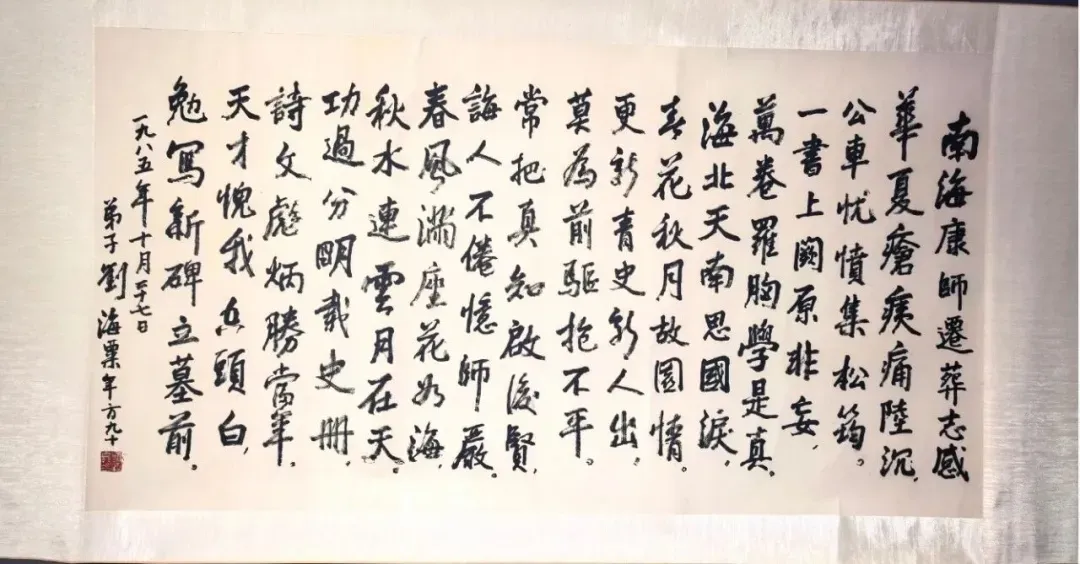 南海康師遷葬志感
華夏瘡痍痛陸沉，
公車忧憤集松筠。
一書上闕原非妄，
萬卷羅胸學是真。
海北天南思國淚，
春花秋月故園情。
更新青史新人出，
莫為前驅抱不平。
常把真知啟後賢，
誨人不倦憶師嚴。
春風滿座花如海，
秋水連雲月在天。
功過分明載史冊，
詩文彪炳勝當年。
天才愧我白頭白，
勉寫新碑立墓前。
一九八五年十月二十七日
弟子劉海粟年方九十